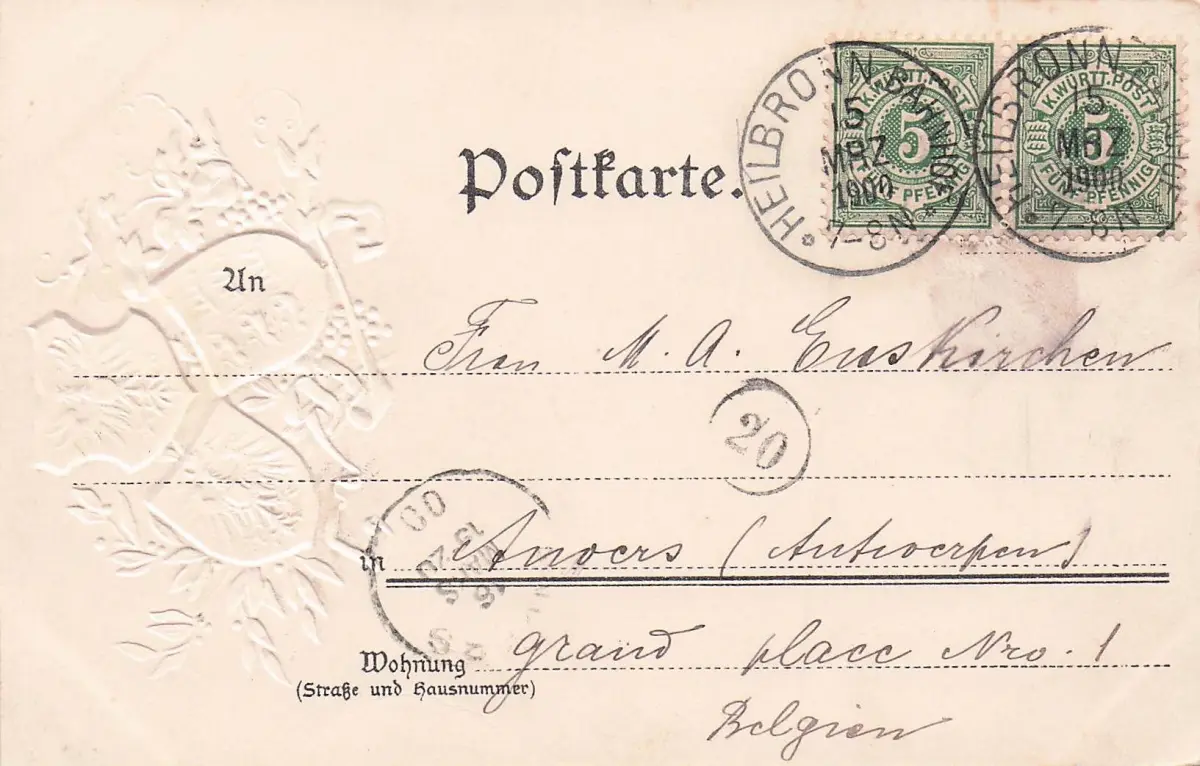 HEILBRONN BAHNHOF
15
MRZ
1900
7-8N
K.WÜRTT.POST
5
FÜNF PFENNIG
HEILBRONN
15
MRZ
1900
7-8N
K.WÜRTT.POST
5
FÜNF PFENNIG
Postkarte.
An
Frau M. A. Euskirchen
20
in Anvers (Antwerpen)
Wohnung grand place Nro. 1
(Straße und Hausnummer)
Belgien